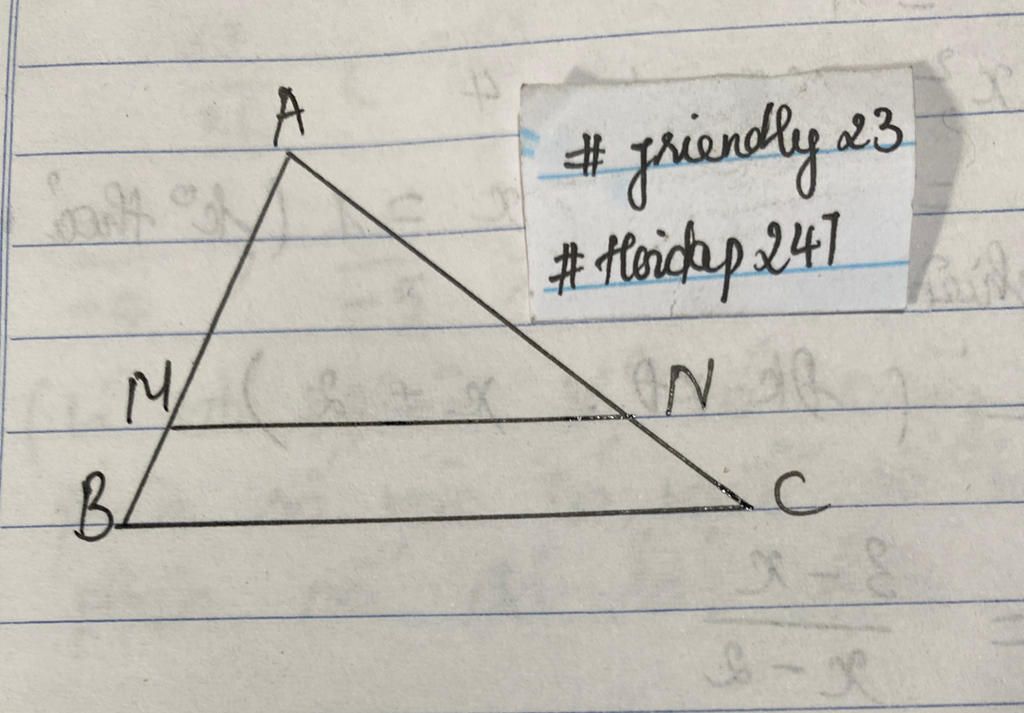 A
# friendly 23
# Hoidap 247
M
N
B
C